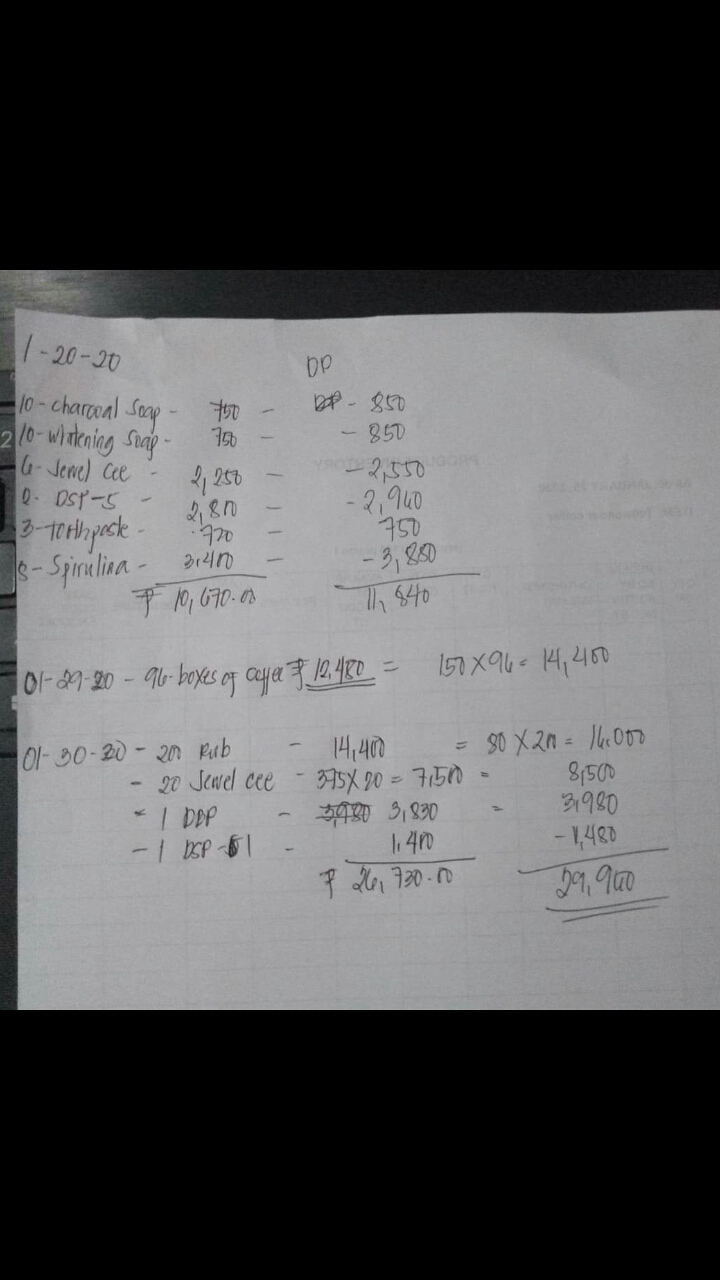 1-20-20
DP
10-charcoal Soap - 750 - DP - 850
10-whitening Soap - 750 - - 850
6-Jewel Cee - 2,250 - - 2,550
2- DSP-5 - 2,800 - - 2,960
3-toothpaste - 720 - 750
8-Spirulina - 3,400 - - 3,880
₱ 10,670.00 11,840
01-29-20 - 96-boxes of coffee ₱ 12,480 = 150 X 96 = 14,400
01-30-20 - 200 Rub - 14,400 = 80 X 200 = 16,000
- 20 Jewel cee - 375 X 20 = 7,500 = 8,500
- 1 DDP - 3,980 3,830 = 3,980
- 1 DSP-1 - 1,400 - 1,480
₱ 26,730.00 29,960